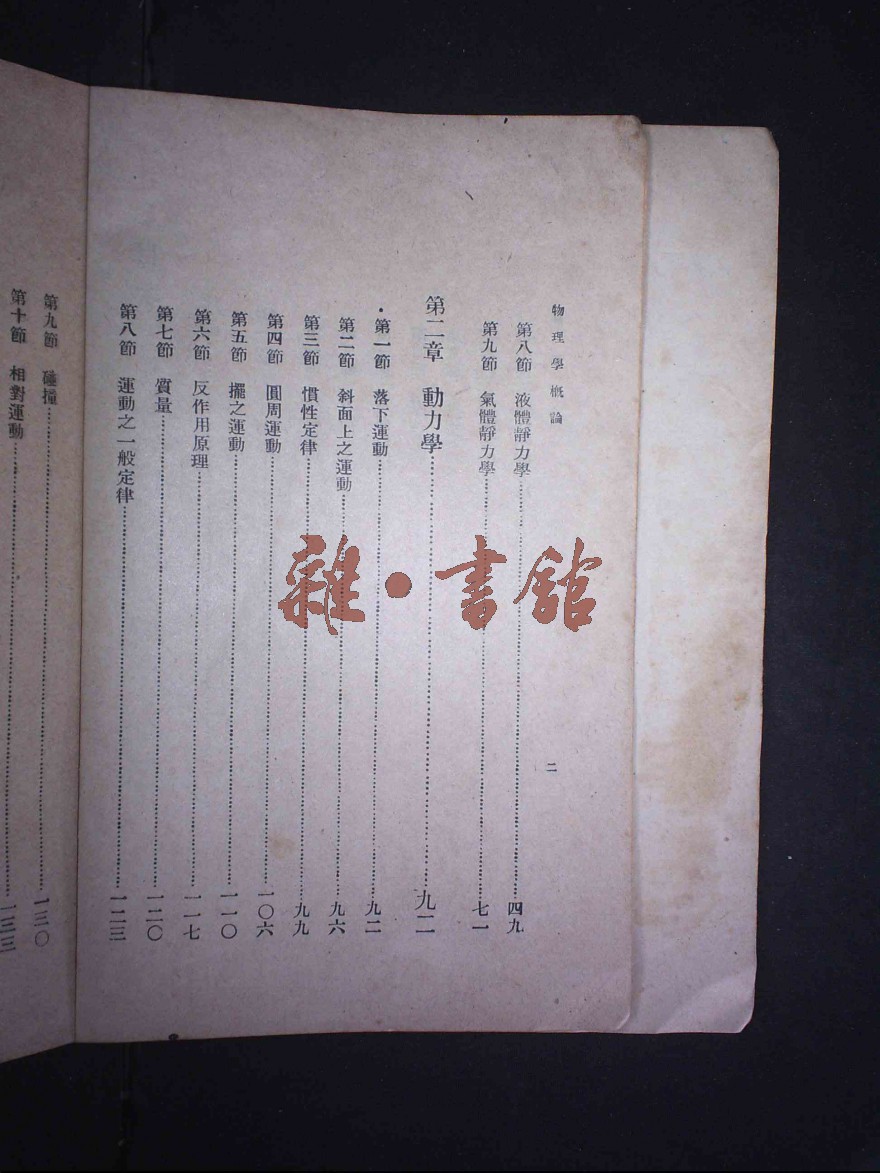 物理學概論
二
第八節 液體靜力學……四九
第九節 氣體靜力學……七一
第二章 動力學……九二
第一節 落下運動……九二
第二節 斜面上之運動……九六
第三節 慣性定律……九九
第四節 圓周運動……一〇六
第五節 擺之運動……一一〇
第六節 反作用原理……一一七
第七節 質量……一二〇
第八節 運動之一般定律……一二三
第九節 碰撞……一三〇
第十節 相對運動……一三三
雜·書館